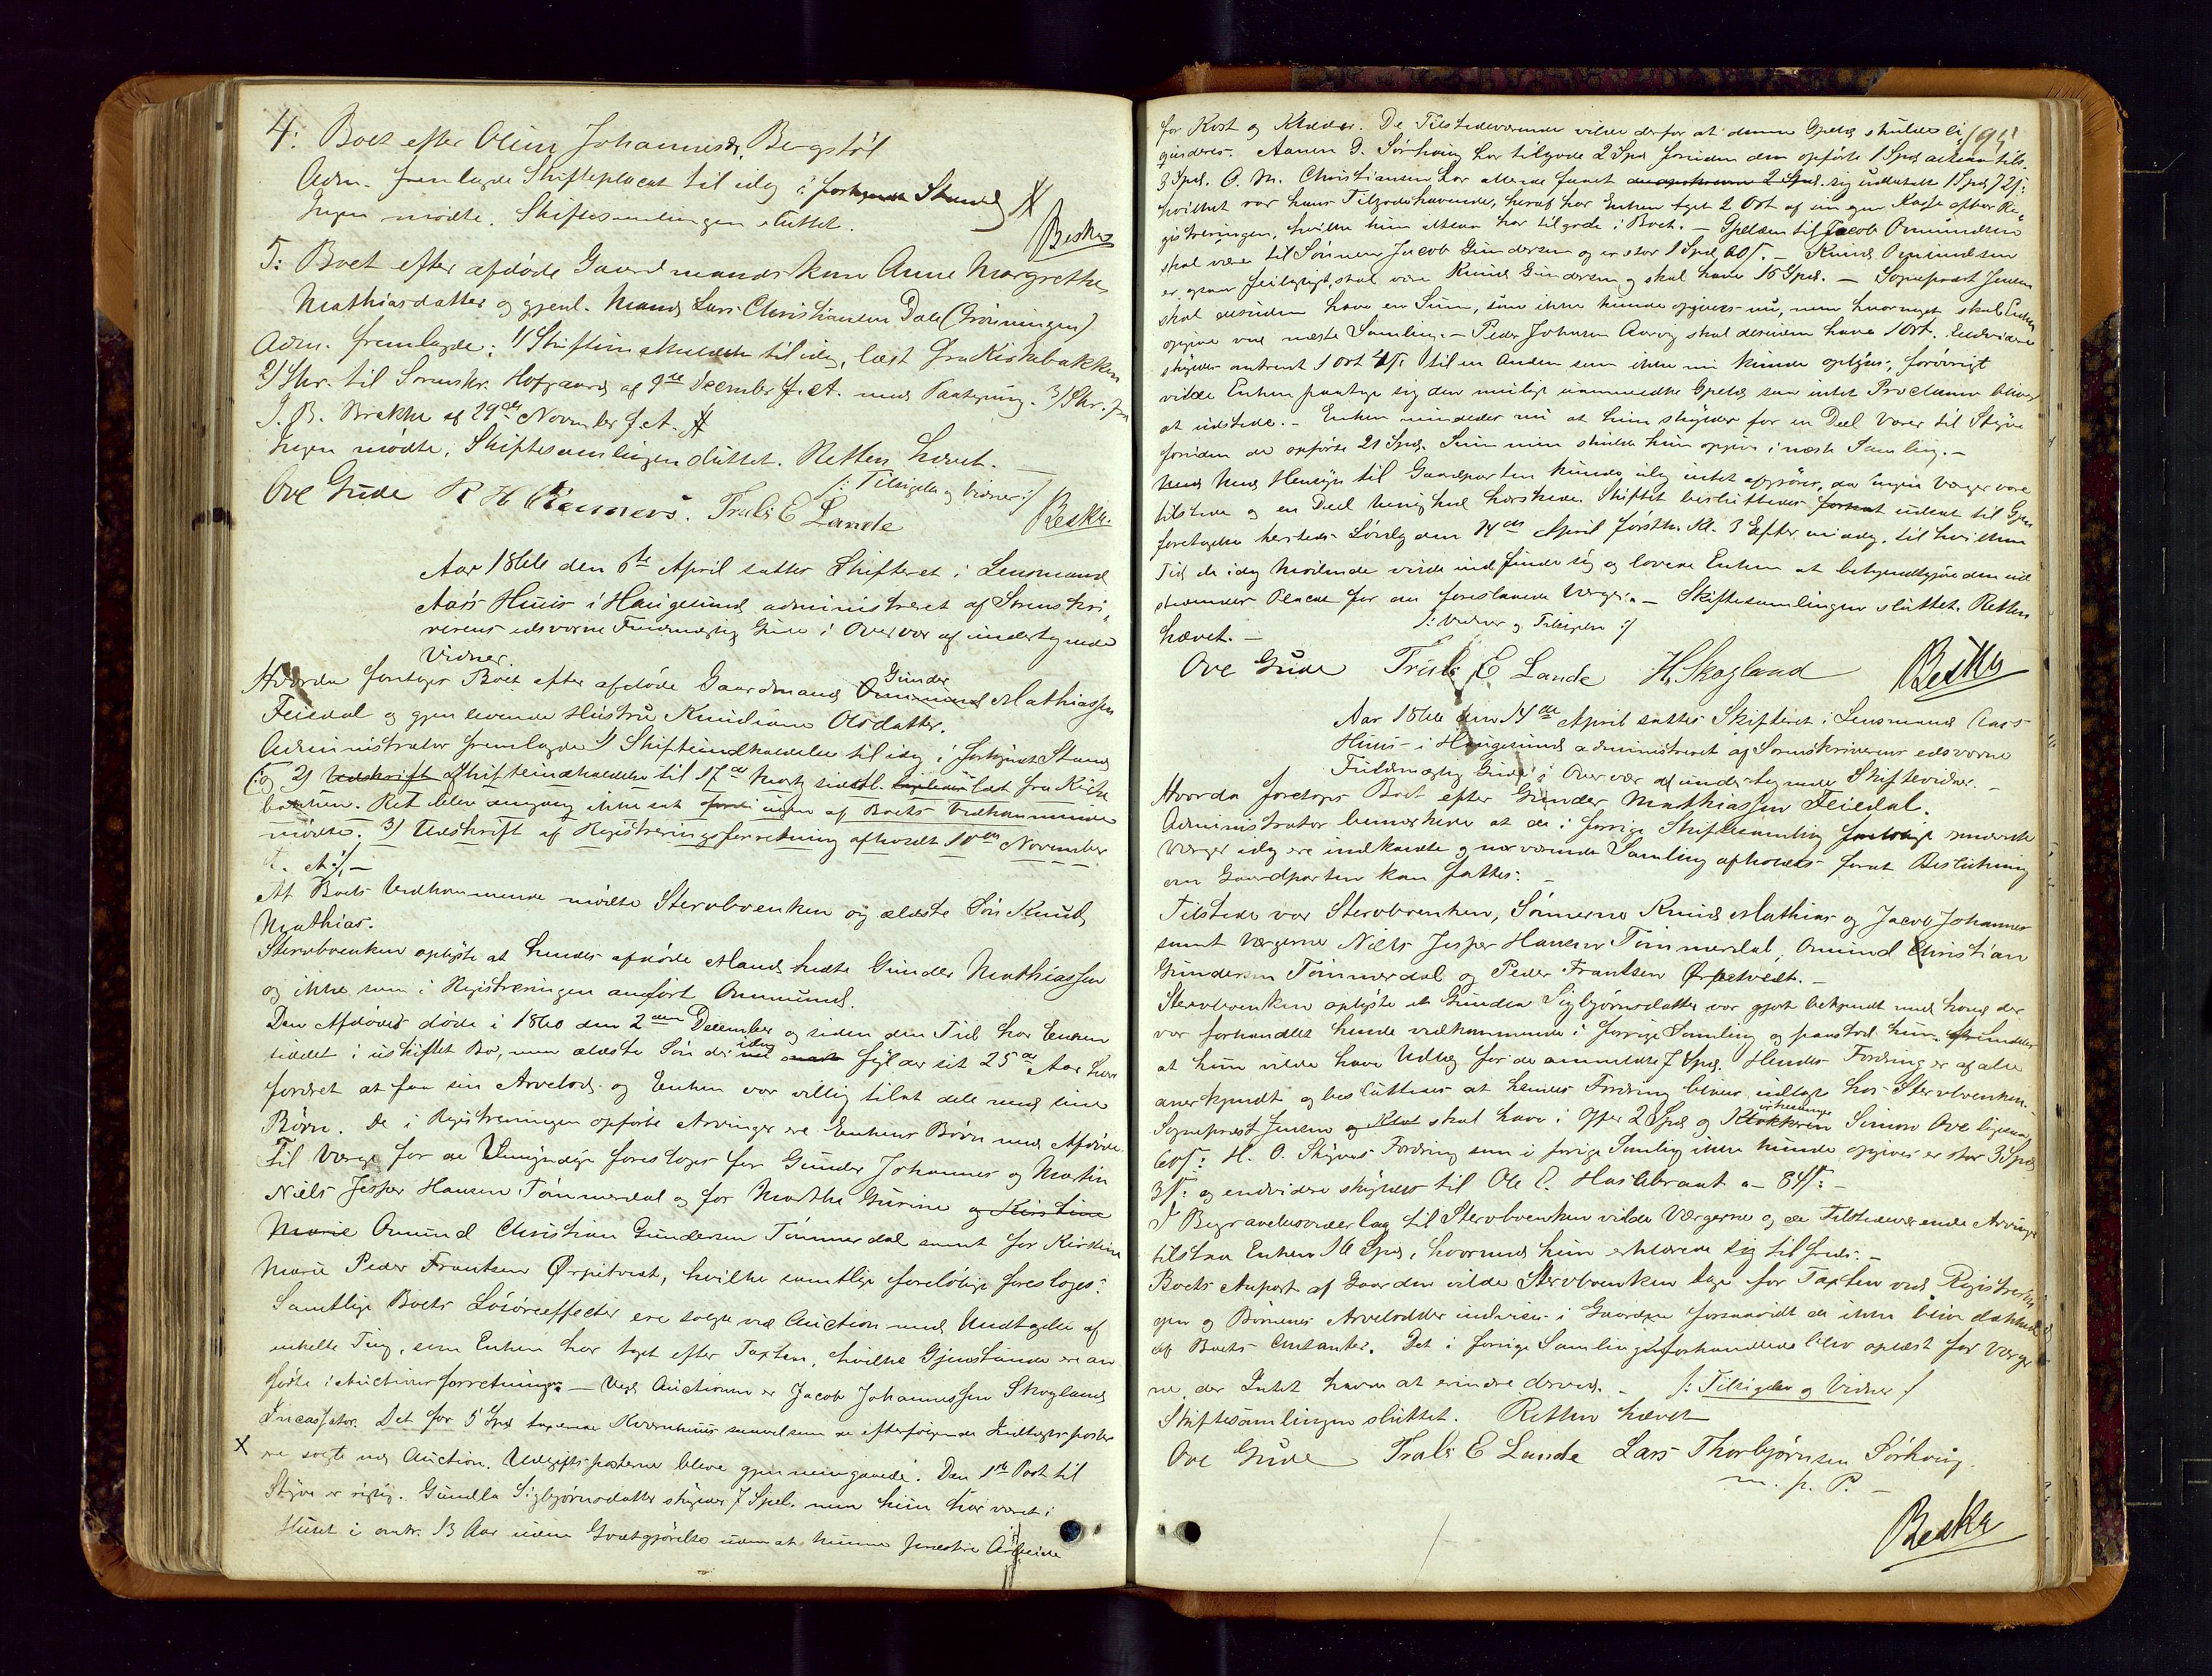 4: Boet efter Oline Johannesd. Bergstöl
Adm. fremlagde Skifteplacat til idag i forkyndt Stand
Ingen mødte. Skiftesamlingen sluttet.
Beskr
5: Boet efter afdöde Gaardmandskone Anne Margrethe
Mathiasdatter og gjenl. Mand Lars Christiansen Dale (Grönningen)
Adm. fremlagde: 1/ Skifteindkaldelse til idag, læst fra Kirkebakken
2/ Skr. til Sorenskr. Hofgaard af 9de December f. A. med Paategning. 3/ Skr. fra
J. B. Brekke af 29de November f. A.
Ingen mödte, Skiftesamlingen sluttet. Retten hævet. —
/: Tilsigelse og Vidner :/
Ove Gude R H Reiners. Trals E Lande
Beskr.
Aar 1866 den 6te April sattes Skifteret i Lensmand
Aas's Huus i Haugesund administreret af Sorenskri-
verens edsvorne Fuldmægtig Gude i Overvær af undertegnede
Vidner.
Gunder
Hvorda foretoges Boet efter afdöde Gaardmand Ommund Mathiassen
Feiedal og gjenlevende Hustru Knudiane Olsdatter.
Administrator fremlagde 1/ Skifteindkaldelse til idag i forkyndt Stand
(:og 2/ Udskrift af Skifteindkaldelse til 17de Marts sidstl. læst fra Kirke
bakken. Ret blev dengang ikke sat fordi ingen af Boets Vedkommende
mödte. 3/ Udskrift af Registreringsforretning afholdt 10de November
f. A :/, —
Af Boets Vedkommende mödte Stervboenken og ældste Sön Knud
Mathias.
Stervboenken oplyste at hendes afdöde Mand hedte Gunder Mathiassen
og ikke som i Registreringen anfört Ommund.
Den Afdöde döde i 1860 den 2den December og siden den Tid har Enken
idag
siddet i uskiftet Bo, men ældste Sön der fylder sit 25de Aar har
fordret at faa sin Arvelod og Enken var villig til at dele med sine
Börn. De i Registreringen opförte Arvinger ere Enkens Börn med Afdöde.
Til Værge for de Umyndige foresloges for Gunder Johannes og Martin
Niels Jesper Hansen Tömmerdal og for Marthe Gurine og Kirstine
Marie Omund Christian Gundersen Tömmerdal samt for Kirstine
Marie Peder Frantsen Ørpetvedt, hvilke samtlige forelöbige foresloges:
Samtlige Boets Lösöreeffecter ere solgte ved Auction med Undtagelse af
enkelte Ting, som Enken har taget efter Taxten, hvilke Gjenstande ere an
förte i Auctionsforretningen — Ved Auctionen er Jacob Johannessen Skogland
Incassator. Det for 5 Spd taxerede Kvernhuus saavelsom de efterfölgende Indtægtsposter
X ere solgte ved Auction. Udgiftsposterne bleve gjennemgaaede. Den 1ste Post til
Stöve er rigtig. Gundla Sigbjörnsdatter skyldes 7 Spd. men hun har været i
Huset i omtr. 13 Aar uden Godtgjörelse uden at kunne forrette Arbeide
195
for Kost og Klæder. De Tilstedeværende vilde derfor at denne Gjeld skulde li
qvideres. Aanen G. Sörhaug har tilgode 2 Spd foruden den opförte 1 Spd altsaa tils.
3 Spd. O. M. Christiansen har allerede faaet sig udbetalt 1 Spd 72 s:
hvilket var hans Tilgodehavende, heraf har Enken taget 2 Ort af sin egen Kasse efter Re-
gistreringen, hvilke hun altsaa har tilgode i Boet. — Gjelden til Jacob Omundsen
skal være til Sönnen Jacob Gundersen og er stor 1 Spd 60 s. — Knud Omundsen
er ogsaa feilagtigt, skal være Knud Gundersen og skal have 16 Spd. — Sognepræst Jensen
skal desuden have en Sum, som ikke kunde opgives nu, men hvormeget skal Enken
opgive ved næste Samling. — Peder Johnsen Aarvog skal desuden have 1 Ort. Endvidere
skyldes omtrent 1 Ort til en Anden som ikke nu kunde oplyses; forövrigt
vilde Enken paatage sig den mulige uanmeldte Gjeld saa intet Proclama bliver
at udstede. — Enken anmeldte nu at hun skylder for en Deel Varer til Stöve
foruden de opförte 21 Spd. Summen skulde hun opgive i næste Samling. —
Med Hensyn til Gaardparten kunde idag intet afgjöres, da Ingen Værger vare
tilstede og en Deel Uenighed herskede. Skiftet besluttedes forsat udsat til Gjen
foretagelse hersteds Lördag den 14de April förstk. Kl. 3 Eftermiddag, til hvilken
Tid de idag Mödende vilde indfinde sig og lovede Enken at bekjendtgjöre den ud
stedende Placat for de foreslaaede Værger. — Skiftesamlingen sluttet. Retten
hævet. — /: Vidner og Tilsigelse :/
Ove Gude Trals E Lande H. Skogland Beskr
Aar 1866 den 14de April sattes Skifteret i Lensmand Aas's
Huus i Haugesund administreret af Sorenskriverens edsvorne
Fuldmægtig Gude i Overvær af undertegnede Skiftevidner. —
Hvorda foretoges Boet efter Gunder Mathiassen Feiedal.
Administrator bemærkede at de i forrige Skiftesamling foreslagne
Værger idag ere indkaldte og nærværende Samling afholdes forat Beslutning
om Gaardparten kan fattes: —
Tilstede var Stervboenken, Sönnerne Knud Mathias og Jacob Johannes
samt Værgerne Niels Jesper Hansen Tömmerdal, Omund Christian
Gundersen Tömmerdal og Peder Frantsen Ørpetvedt. —
Stervboenken oplyste at Gundla Sigbjörnsdatter var gjort bekjendt med hvad der
var forhandlet hende vedkommende i forrige Samling og paastod hun
at hun vilde have Udlæg for de anmeldte 7 Spd. Hendes Fordring er af alle
anerkjendt og besluttedes at hendes Fordring bliver udlagt hos Stervboenken.
Sognepræst Jensen og skal have i Offer 2 Spd og Kirkesanger Simon Ove ligesaa
60 s: H. O. Stöves Fordring som i forrige Samling ikke kunde opgives er stor 3 Spd
3 s: og endvidere skyldes til Ole C. Haslebraat a — 84 s: —
I Begravelsesvederlag til Stervboenken vilde Værgerne og de Tilstedeværende Arvinger
tilstaa Enken 16 Spd, hvormed hun erklærede sig tilfreds. —
Boets Anpart af Gaarden vilde Stervboenken tage for Taxten ved Registrerin
gen og Börnenes Arvelodder indvises i Gaarden forsaavidt de ikke blive dækkede
af Boets Contanter. Det i forrige Samling forhandlede blev oplæst for Værger
ne der Intet havde at erindre derved. — /: Tilsigelse og Vidner /
Skiftesamlingen sluttet. Retten hævet
Ove Gude Trals E Lande Lars Thorbjørnsen Sörhoug.
m. p. P. —
Beskr